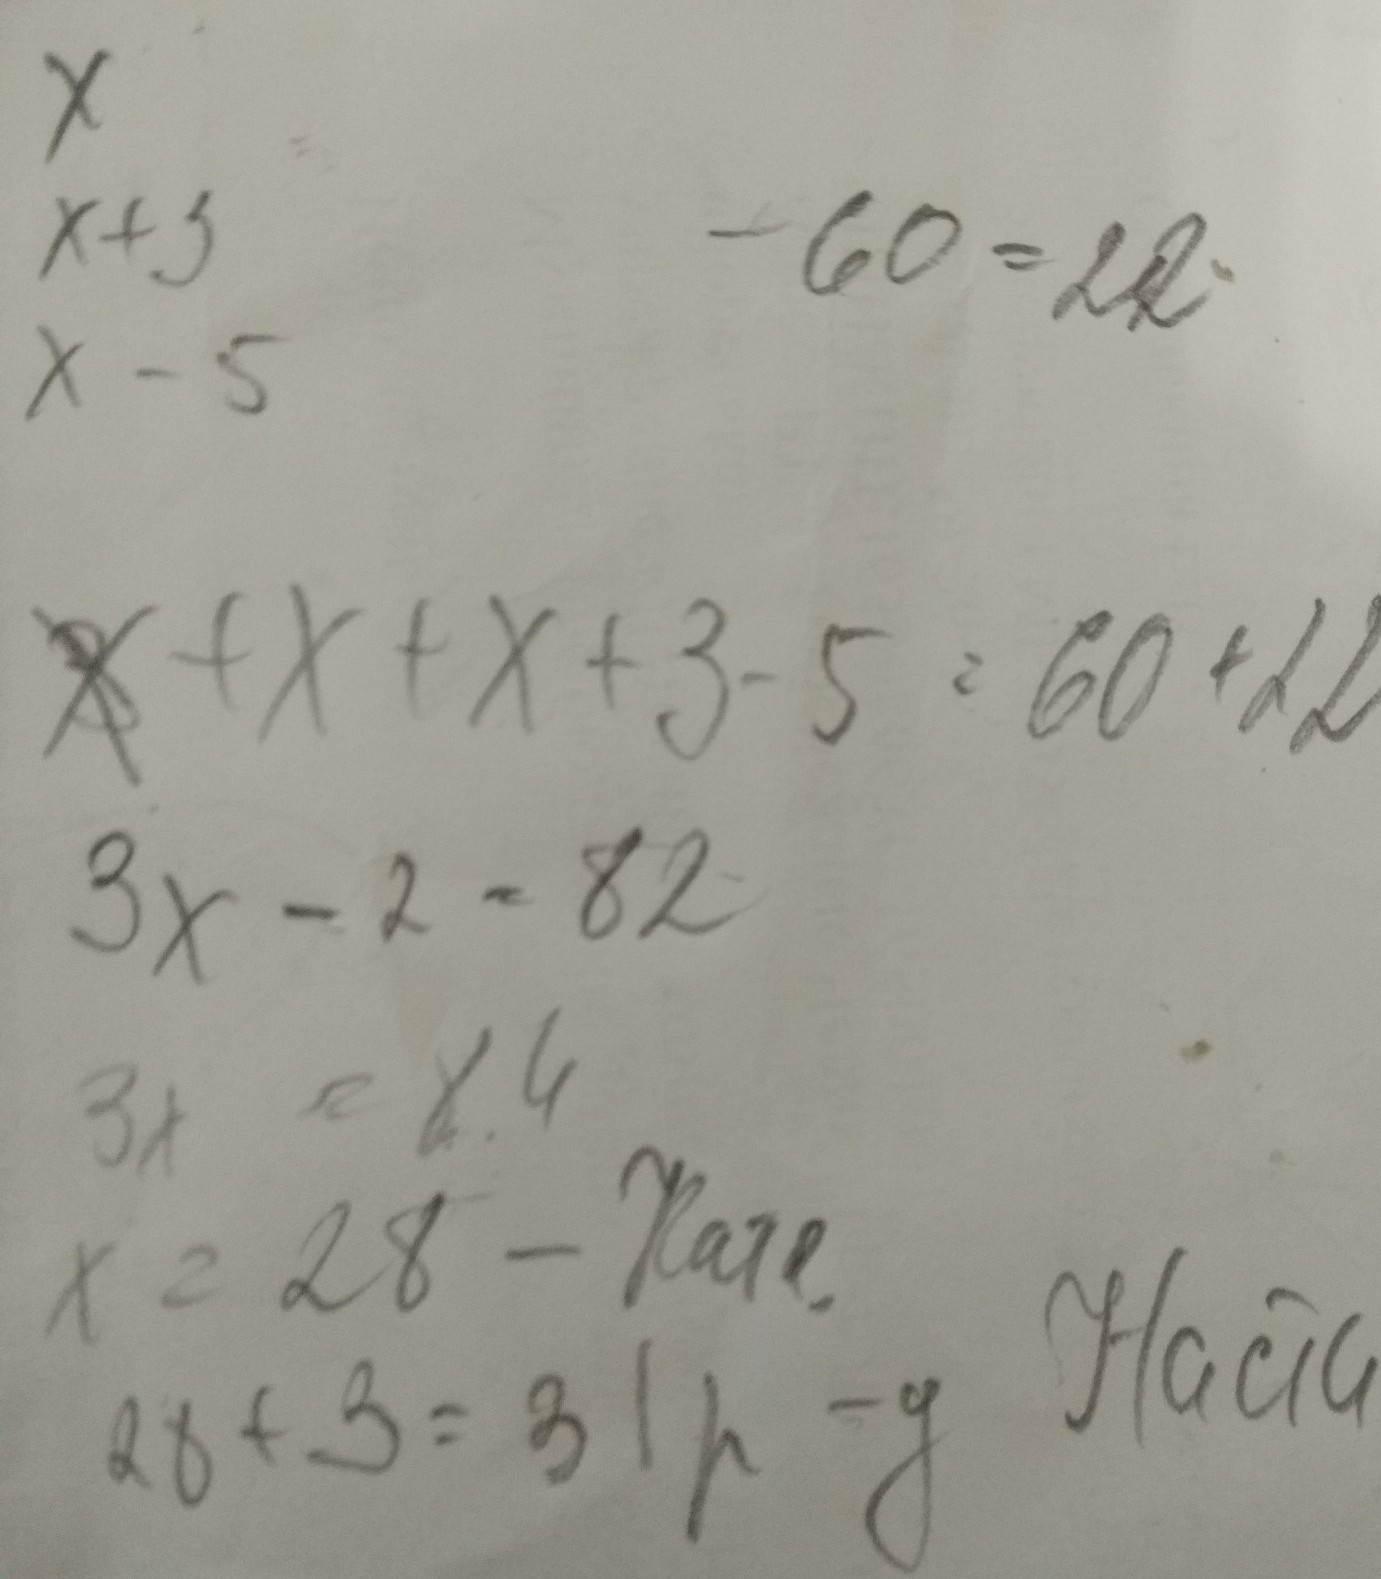 x
x+3
- 60 = 22
x - 5
x + x + x + 3 - 5 = 60 + 22
3x - 2 = 82
3x = 84
x = 28 - Катя
28 + 3 = 31 р - у Насти